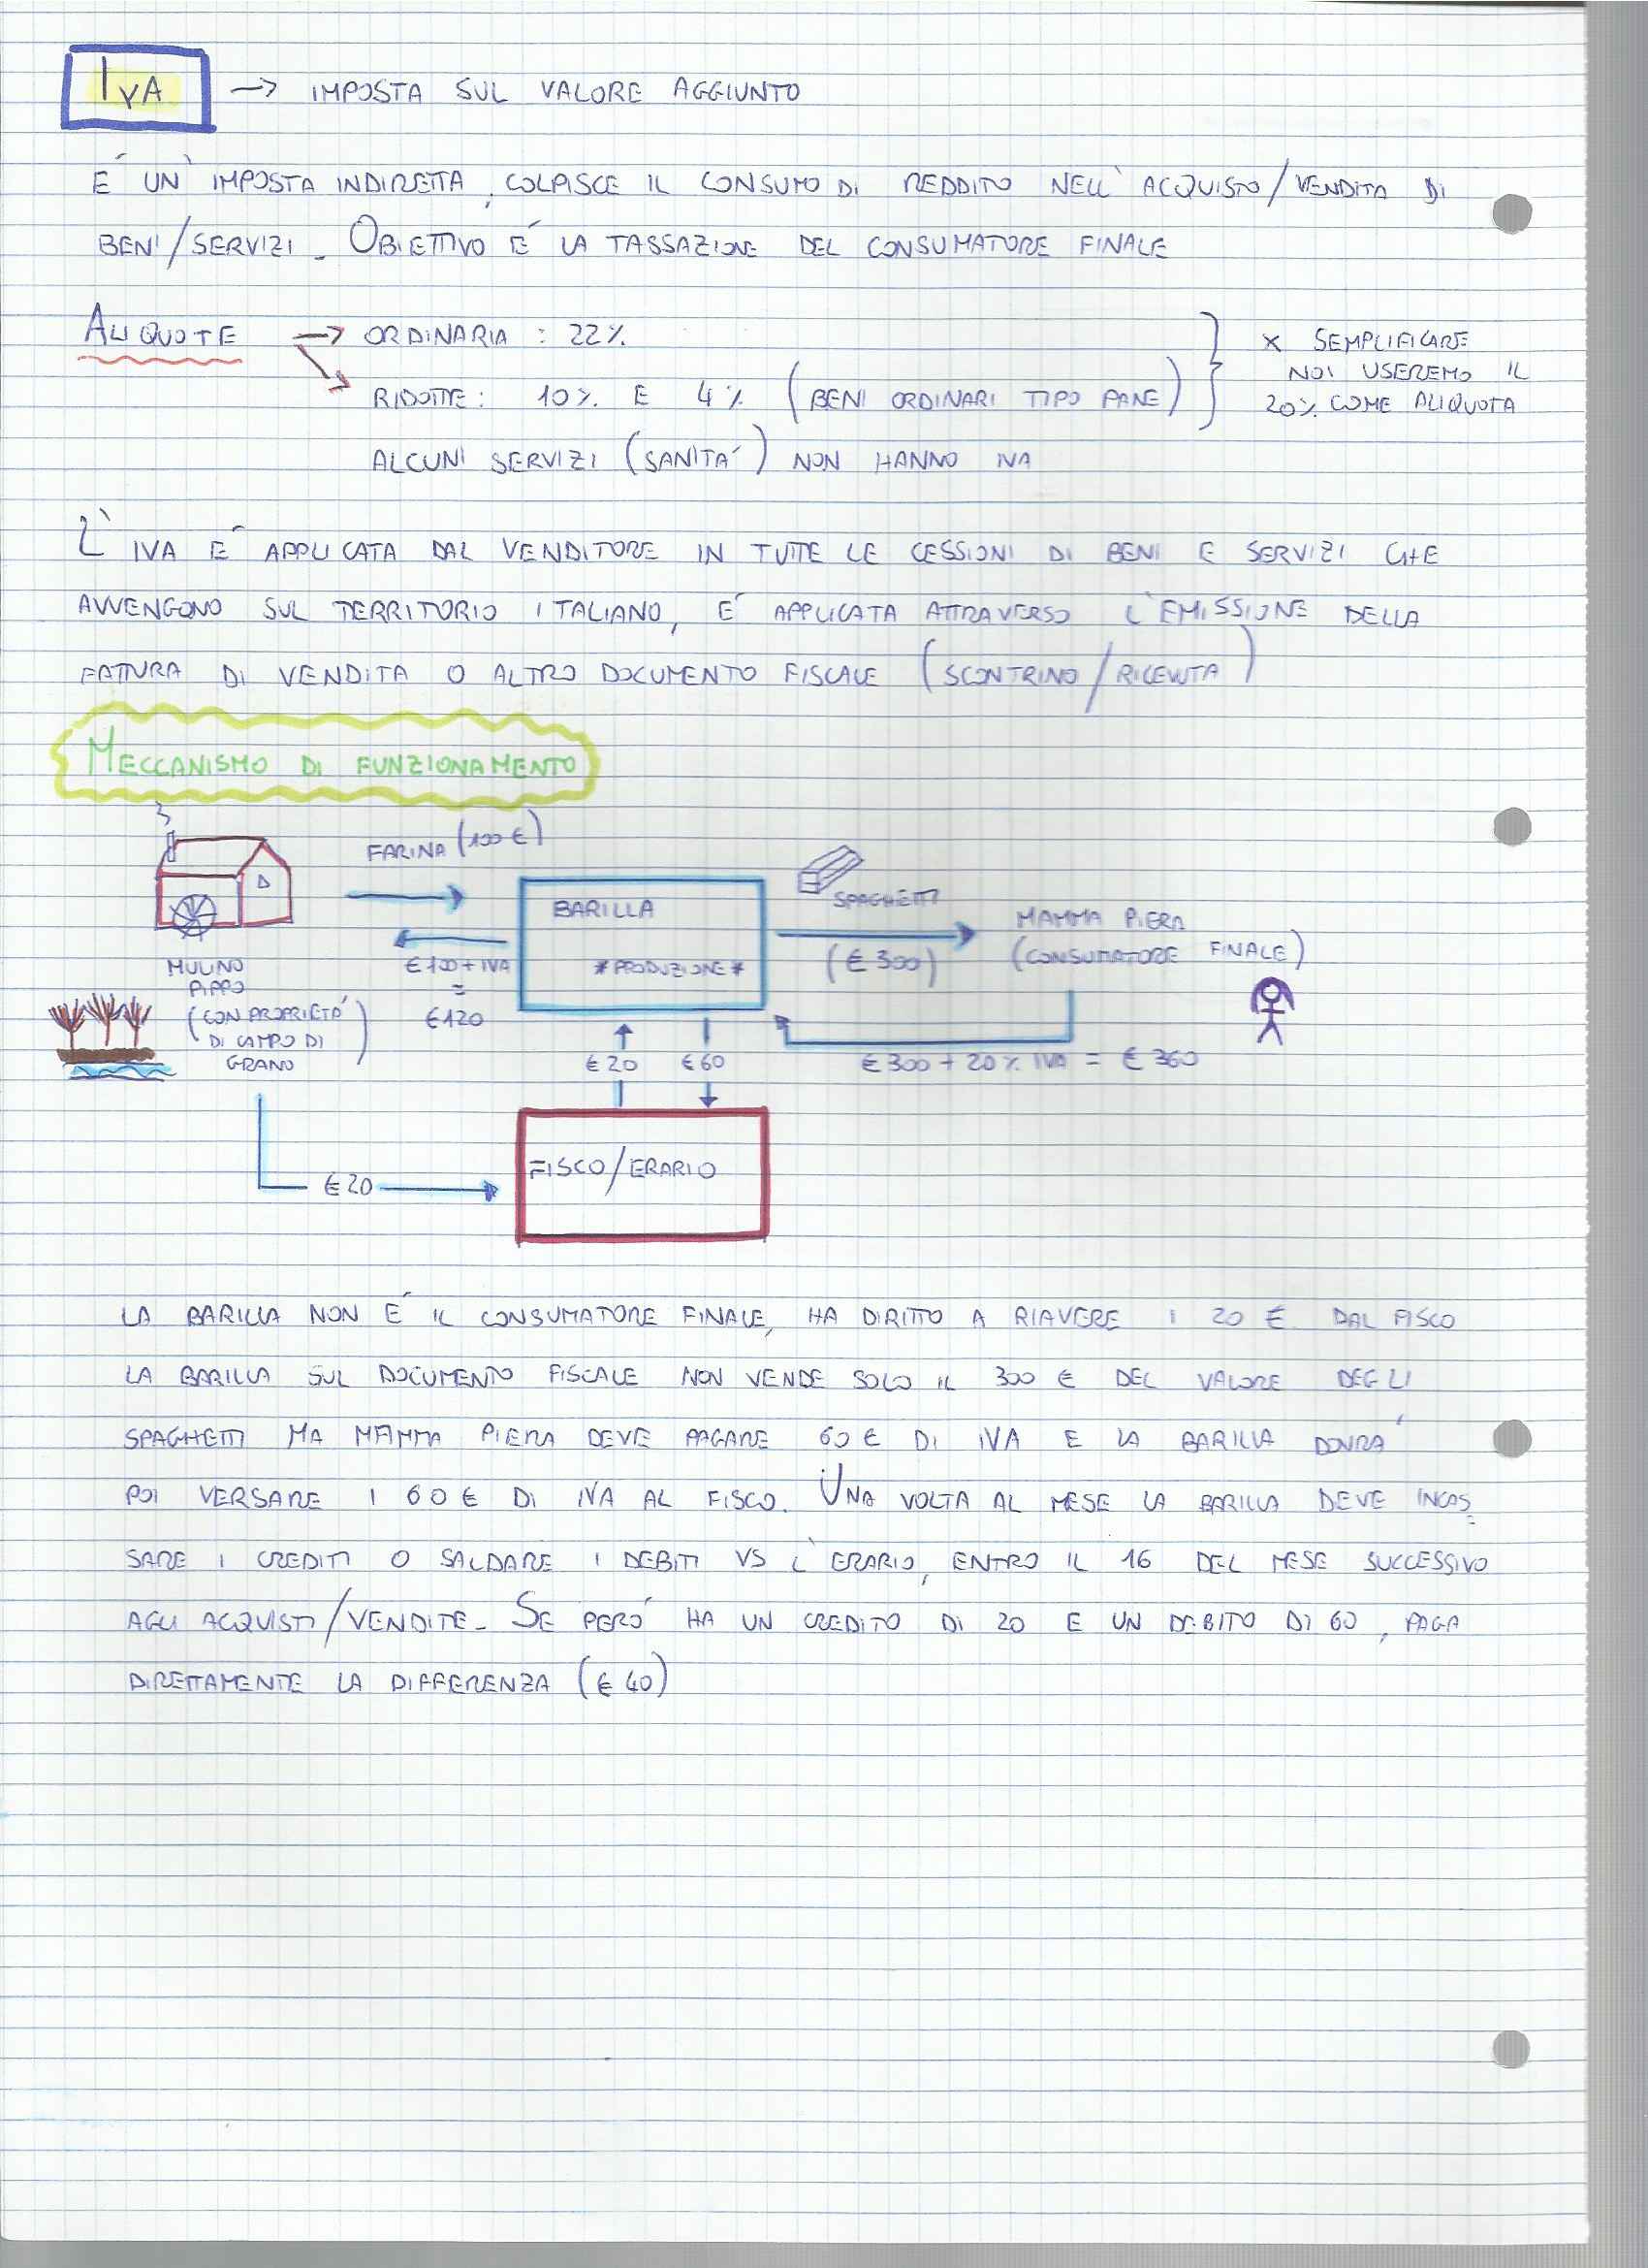 IVA → IMPOSTA SUL VALORE AGGIUNTO
É UN' IMPOSTA INDIRETTA, COLPISCE IL CONSUMO DI REDDITO NELL' ACQUISTO/VENDITA DI
BENI/SERVIZI_ OBIETTIVO É LA TASSAZIONE DEL CONSUMATORE FINALE
ALIQUOTE → ORDINARIA : 22%
RIDOTTE: 10% E 4% (BENI ORDINARI TIPO PANE)
ALCUNI SERVIZI (SANITA') NON HANNO IVA
X SEMPLIFICARE
NOI USEREMO IL
20% COME ALIQUOTA
L' IVA É APPLICATA DAL VENDITORE IN TUTTE LE CESSIONI DI BENI E SERVIZI CHE
AVVENGONO SUL TERRITORIO ITALIANO, E' APPLICATA ATTRAVERSO L'EMISSIONE DELLA
FATTURA DI VENDITA O ALTRO DOCUMENTO FISCALE (SCONTRINO/RICEVUTA)
MECCANISMO DI FUNZIONAMENTO
FARINA (100 €)
BARILLA
*PRODUZIONE*
SPAGHETTI
(€ 300)
MAMMA PIERA
(CONSUMATORE FINALE)
MULINO
PIPPO
(CON PROPRIETÁ
DI CAMPO DI
GRANO)
€ 100 + IVA
=
€ 120
€ 20 € 60
€ 300 + 20% IVA = € 360
FISCO/ERARIO
€ 20
LA BARILLA NON É IL CONSUMATORE FINALE, HA DIRITTO A RIAVERE I 20 € DAL FISCO
LA BARILLA SUL DOCUMENTO FISCALE NON VENDE SOLO IL 300 € DEL VALORE DEGLI
SPAGHETTI MA MAMMA PIERA DEVE PAGARE 60 € DI IVA E LA BARILLA DOVRÁ
POI VERSARE I 60 € DI IVA AL FISCO. UNA VOLTA AL MESE LA BARILLA DEVE INCAS
SARE I CREDITI O SALDARE I DEBITI VS L'ERARIO, ENTRO IL 16 DEL MESE SUCCESSIVO
AGLI ACQUISTI/VENDITE_ SE PERÓ HA UN CREDITO DI 20 E UN DEBITO DI 60, PAGA
DIRETTAMENTE LA DIFFERENZA (€ 40)